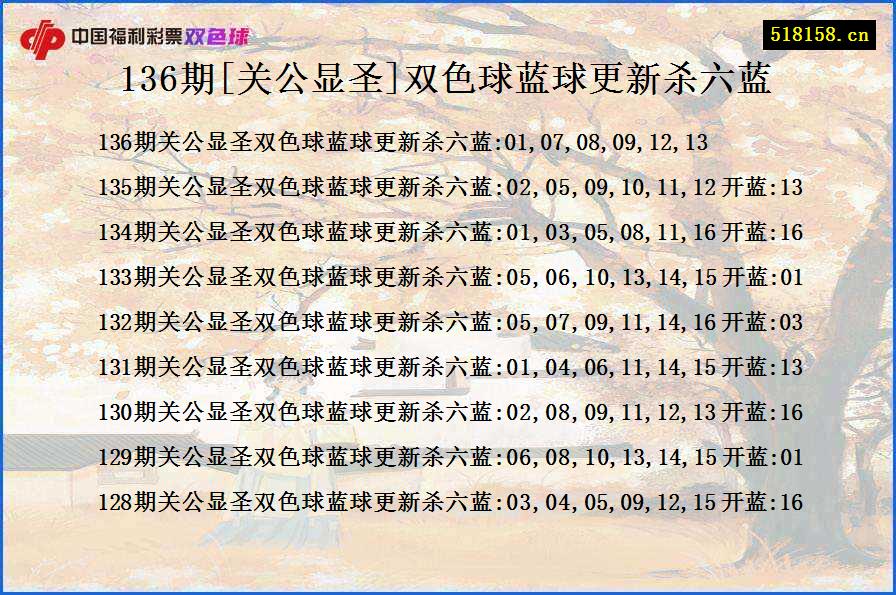 中国福利彩票双色球
518158.cn
136期[关公显圣]双色球蓝球更新杀六蓝
136期关公显圣双色球蓝球更新杀六蓝:01,07,08,09,12,13
135期关公显圣双色球蓝球更新杀六蓝:02,05,09,10,11,12开蓝:13
134期关公显圣双色球蓝球更新杀六蓝:01,03,05,08,11,16开蓝:16
133期关公显圣双色球蓝球更新杀六蓝:05,06,10,13,14,15开蓝:01
132期关公显圣双色球蓝球更新杀六蓝:05,07,09,11,14,16开蓝:03
131期关公显圣双色球蓝球更新杀六蓝:01,04,06,11,14,15开蓝:13
130期关公显圣双色球蓝球更新杀六蓝:02,08,09,11,12,13开蓝:16
129期关公显圣双色球蓝球更新杀六蓝:06,08,10,13,14,15开蓝:01
128期关公显圣双色球蓝球更新杀六蓝:03,04,05,09,12,15开蓝:16